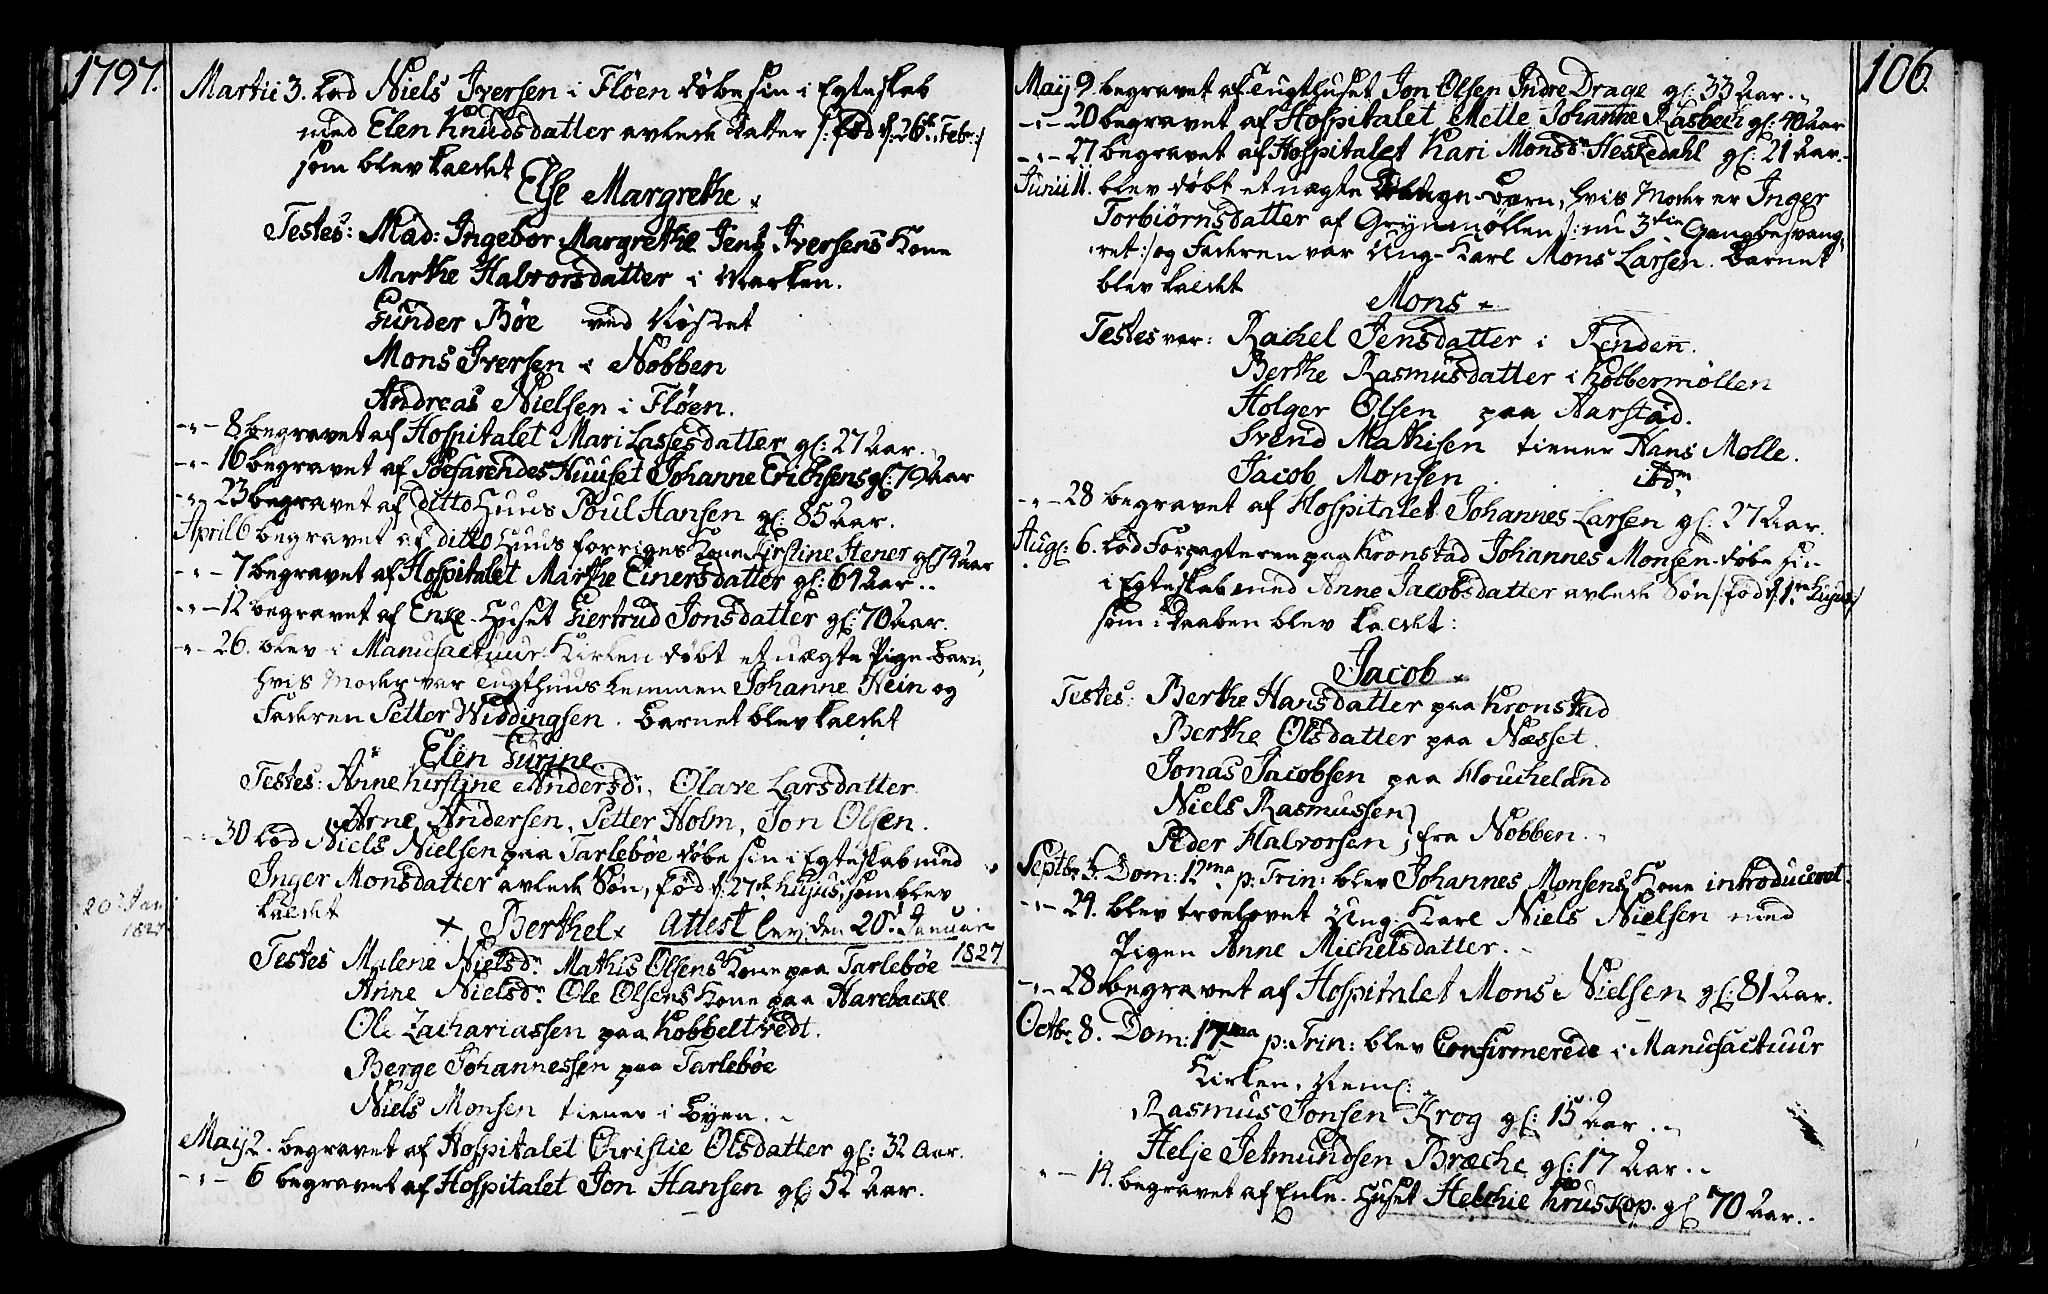 1797.
Martii 3. Lod Niels Iversen i Fløen døbe sin i Egteskab
med Elen Knudsdatter avlede Datter /: fød d. 26de Febr: :/
som blev kaldet
Else Margrethe
Testes: Mad: Ingebor Margrethe Jens Iversens Kone
Marthe Halvorsdatter i Marken.
Günder Böe ved Nøstet
Mons Iversen i Nobben
Andreas Nielsen i Fløen.
-„- 8 begravet af Hospitalet Mari Lassesdatter gl: 27 Aar.
-„- 16 begravet af Søefarendes Huuset Johanne Erichsens gl: 79 Aar
-„- 23 begravet af ditto Huus Poul Hansen gl: 85 Aar.
April 6 begravet af ditto Huus forriges Kone Kirstine Hener gl 74 Aar
-„- 7 begravet af Hospitalet Marthe Einersdatter gl: 69 Aar..
-„- 12 begravet af Enke-Huset Giertrud Jonsdatter gl: 70 Aar.
-„- 26. blev i Manufactuur Kirken døbt et uægte Pige-Barn,
hvis Moder var Tugthuus Lemmen Johanne Hein og
Faderen Petter Widdingsen. Barnet blev kaldet
Elen Turine
Testes: Anne Kirstine Andersdr., Olave Larsdatter
Arne Andersen, Petter Holm, Jon Olsen.
-„- 30 Lod Niels Nielsen paa Tarlebøe døbe sin i Egteskab med
Inger Monsdatter avlede Søn, fød d: 27de hujus, som blev
kaldet
20d Jan 1827
+ Berthel Attest lev. den 20d Januari 1827
Testes Malene Nielsdr. Mathis Olsens Kone paa Tarlebøe
Anne Nielsdr. Ole Olsens Kone paa Harebacke
Ole Zachariassen paa Kobbeltvedt.
Berge Johannessen paa Tarlebøe
Niels Monsen tiener i Byen.
May 2. begravet af Hospitalet Christie Olsdatter gl: 32 Aar.
-„- 6 begravet af Hospitalet Jon Hansen gl: 52 Aar.
106.
May 9. begravet af Tugthuset Jon Olsen Indre Drage gl: 33 Aar.
-„- 20 begravet af Hospitalet Mette Johanne Rasbech gl: 40 Aar
-„- 27 begravet af Hospitalet Kari Monsdr. Heskedahl gl: 21 Aar.
Junii 11. blev døbt et uægte Barn, hvis Moder er Inger
Torbiörnsdatter af Grynmøllen /: nu 3die Gang besvang-
ret :/ og Faderen var Ung-Karl Mons Larsen. Barnet
blev kaldet
Mons
Testes var: Rachel Jensdatter i Renden.
Berthe Rasmusdatter i Kobbermöllen
Holger Olsen paa Aarstad.
Svend Mathisen tiener Hans Molle.
Jacob Monsen ibdm
-„- 28 begravet af Hospitalet Johannes Larsen gl: 27 Aar.
Aug: 6. Lod Forpagteren paa Kronstad Johannes Monsen døbe sin
i Egteskab med Anne Jacobsdatter avlede Søn /: fød d. 1te hujus :/
som i Daaben blev kaldet:
Jacob
Testes: Berthe Hansdatter paa Kronstad
Berthe Olsdatter paa Næsset.
Jonas Jacobsen paa Houcheland
Niels Rasmussen
Peder Halvorsen } fra Nobben.
Septbr 3. Dom: 12ma p: Trin: blev Johannes Monsens Kone introduceret
-„- 24. blev troelovet Ung-Karl Niels Nielsen med
Pigen Anne Michelsdatter.
-„- 28 begravet af Hospitalet Mons Nielsen gl: 81 Aar.
Octbr 8. Dom: 17ma p: Trin: blev Confirmerede i Manufactuur
Kirken, Neml:
Rasmus Jonsen Krog gl: 15 Aar.
Helje Jetmundsen Bræche gl: 17 Aar.
-„- 14. begravet af Enke-Huset Helchie Kruskop. gl 70 Aar.